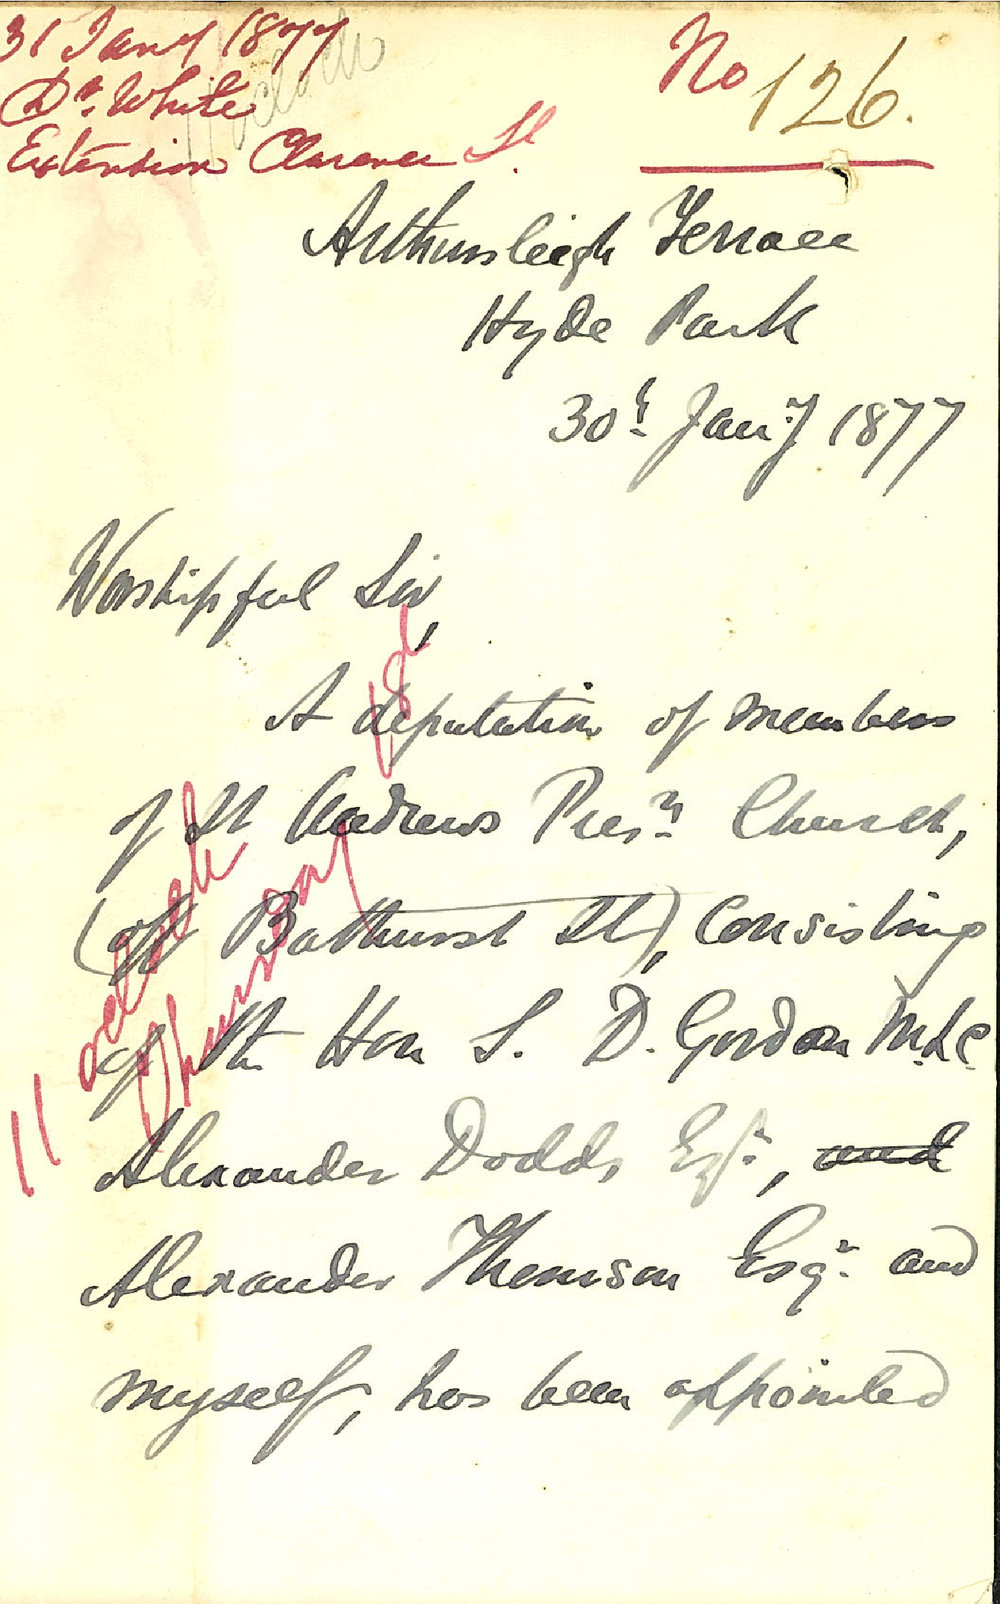 31 Jany 1877
Dr. White
Extension Clarence St.
No 126.
oclock
Arthursleigh Terrace
Hyde Park
30th Jany 1877
Worshipful Sir,
A deputation of members
of St Andrews Presn Church,
(off Bathurst St), consisting
of the Hon S. D. Gordon M.L.C.
Alexander Dodds Esqr, and
Alexander Thomson Esqr. and
myself, has been appointed
11 oclock
Thursday 1st